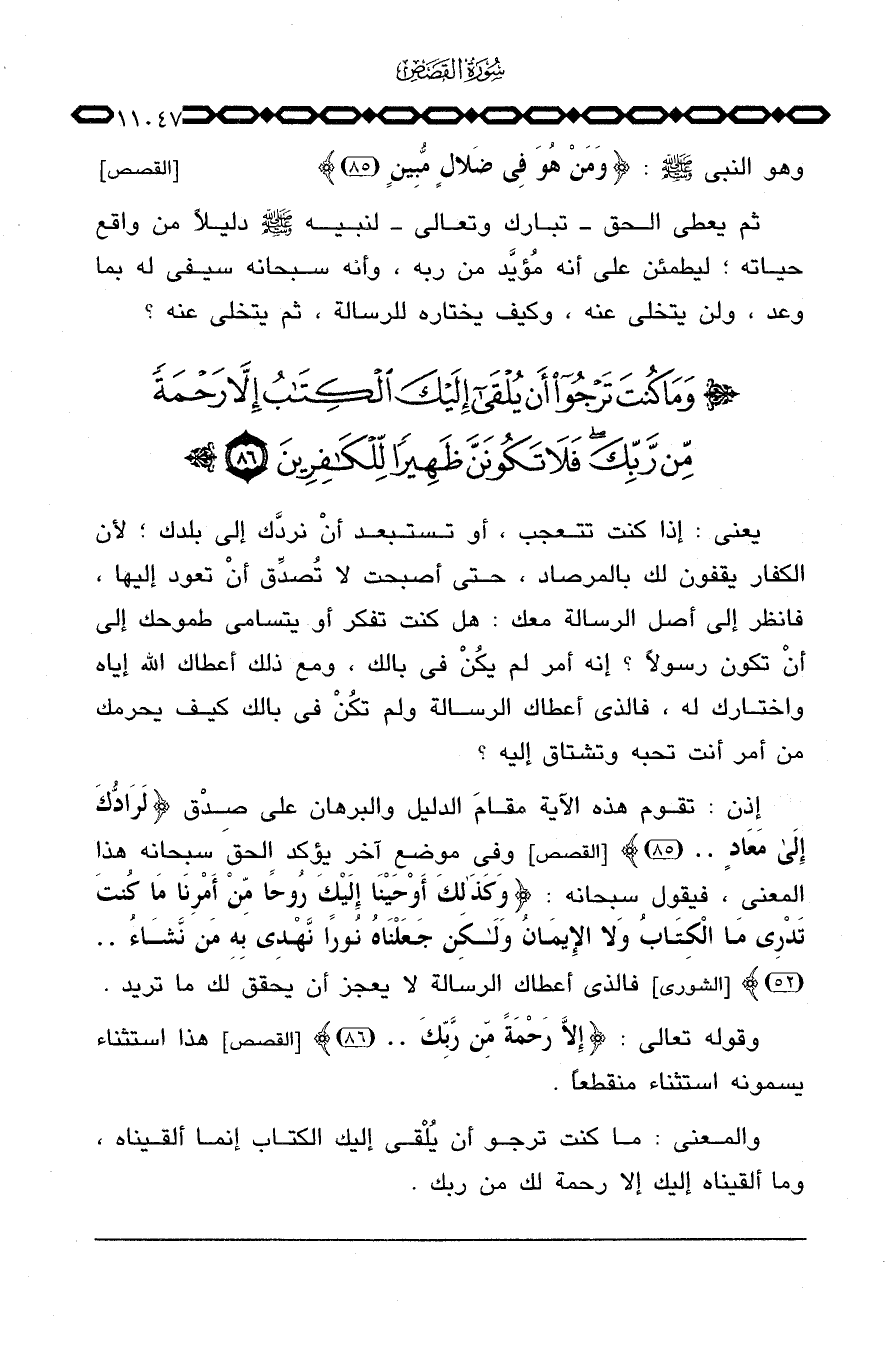 سُورَةُ القَصَصِ
١١٠٤٧
وهو النبى ﷺ : ﴿ وَمَنْ هُوَ فِى ضَلالٍ مُّبِينٍ (٨٥) ﴾ [القصص]
ثم يعطى الحق - تبارك وتعالى - لنبيه ﷺ دليلاً من واقع
حياته ؛ ليطمئن على أنه مُؤيَّد من ربه ، وأنه سبحانه سيفى له بما
وعد ، ولن يتخلى عنه ، وكيف يختاره للرسالة ، ثم يتخلى عنه ؟
﴿ وَمَا كُنتَ تَرْجُوٓا۟ أَن يُلْقَىٰٓ إِلَيْكَ ٱلْكِتَٰبُ إِلَّا رَحْمَةً
مِّن رَّبِّكَ ۖ فَلَا تَكُونَنَّ ظَهِيرًا لِّلْكَٰفِرِينَ (٨٦) ﴾
يعنى : إذا كنت تتعجب ، أو تستبعد أنْ نردَّك إلى بلدك ؛ لأن
الكفار يقفون لك بالمرصاد ، حتى أصبحت لا تُصدِّق أنْ تعود إليها ،
فانظر إلى أصل الرسالة معك : هل كنت تفكر أو يتسامى طموحك إلى
أنْ تكون رسولاً ؟ إنه أمر لم يكُنْ فى بالك ، ومع ذلك أعطاك الله إياه
واختارك له ، فالذى أعطاك الرسالة ولم تكُنْ فى بالك كيف يحرمك
من أمر أنت تحبه وتشتاق إليه ؟
إذن : تقوم هذه الآية مقامَ الدليل والبرهان على صدْق ﴿ لَرَادُّكَ
إِلَىٰ مَعَادٍ .. (٨٥) ﴾ [القصص] وفى موضع آخر يؤكد الحق سبحانه هذا
المعنى ، فيقول سبحانه : ﴿ وَكَذَٰلِكَ أَوْحَيْنَا إِلَيْكَ رُوحًا مِّنْ أَمْرِنَا مَا كُنتَ
تَدْرِى مَا الْكِتَابُ وَلا الإِيمَانُ وَلَٰكِن جَعَلْنَاهُ نُورًا نَّهْدِى بِهِ مَن نَّشَاءُ ..
(٥٢) ﴾ [الشورى] فالذى أعطاك الرسالة لا يعجز أن يحقق لك ما تريد .
وقوله تعالى : ﴿ إِلاَّ رَحْمَةً مِّن رَّبِّكَ .. (٨٦) ﴾ [القصص] هذا استثناء
يسمونه استثناء منقطعاً .
والمعنى : ما كنت ترجو أن يُلْقى إليك الكتاب إنما ألقيناه ،
وما ألقيناه إليك إلا رحمة لك من ربك .